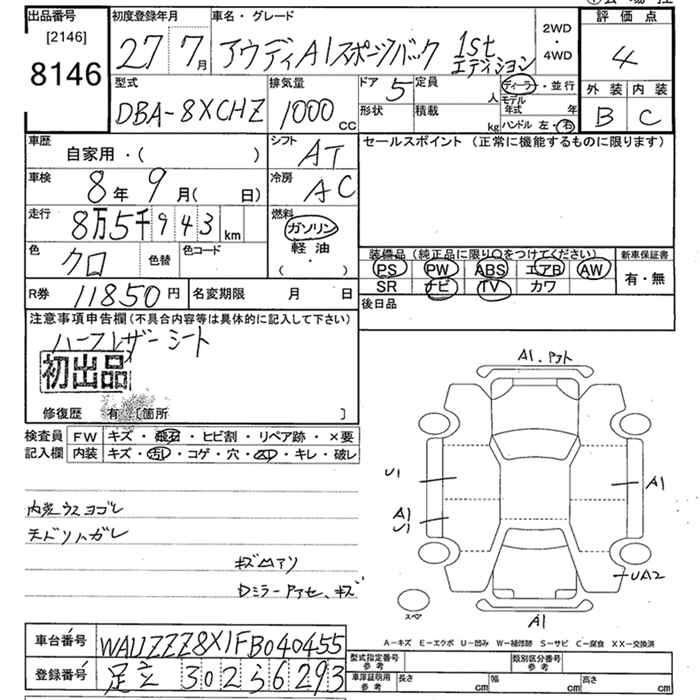 出品番号
[2146]
8146
初度登録年月
27 7月
車名・グレード
アウディA1スポーツバック 1st エディション
2WD
・
4WD
評価点
4
外装 内装
B C
型式
DBA-8XCHZ
排気量
1000 cc
ドア 5
定員 人
形状
積載 kg
ディーラー・並行
モデル年式 年
ハンドル 左・右
車歴
自家用・( )
シフト
AT
セールスポイント (正常に機能するものに限ります)
車検
8年 9月( 日)
冷房
AC
走行
8万5千943 km
燃料
ガソリン
軽油
( ・ )
色
クロ
色替
色コード
装備品 (純正品に限り○をつけてください)
PS PW ABS エアB AW
SR ナビ TV カワ
新車保証書
有・無
R券 11850円
名変期限 月 日
後日品
注意事項申告欄 (不具合内容等は具体的に記入して下さい)
ハーフレザーシート
初出品
修復歴 有 [箇所 ]
検査員
記入欄
FW キズ・飛石・ヒビ割・リペア跡・×要
内装 キズ・汚れ・コゲ・穴・スレ・キレ・破レ
内装ウスヨゴレ
キズ
Dミラー キズ
A1
U1
A1
U1
A1
UA2
スペア
A1
A-キズ E-エクボ U-凹み W-補修跡 S-サビ C-腐食 XX-交換済
車台番号
WAUZZZ8X1FB040455
登録番号
足立 302 ら 6293
型式指定番号
参考
類別区分番号
参考
車庫証明用
参考
長さ cm
幅 cm
高さ cm